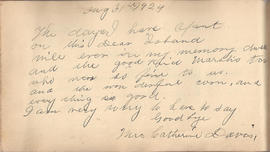 Aug 31st 1924
The days I have spent
on this dear Island
will ever on my memory
and the good Kind
who were so fine to us.
and the wonderful and
everything so good.
I am very sorry to have to say
Goodbye
Mrs. Catherine Davis,